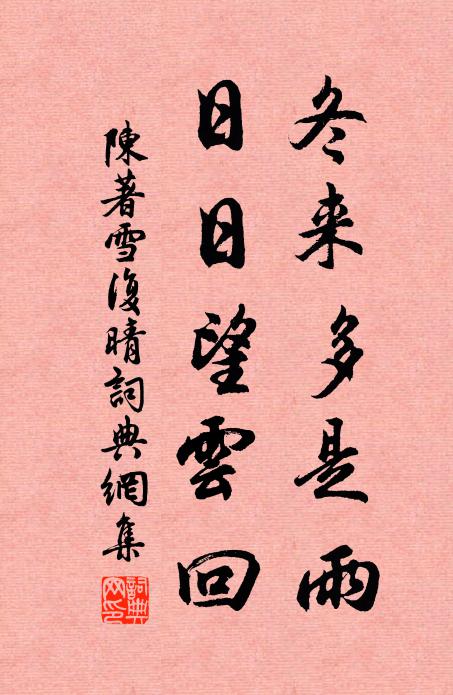 冬来多是雨
日日望雲回
陳著雪復晴詞典網集
詞典网印